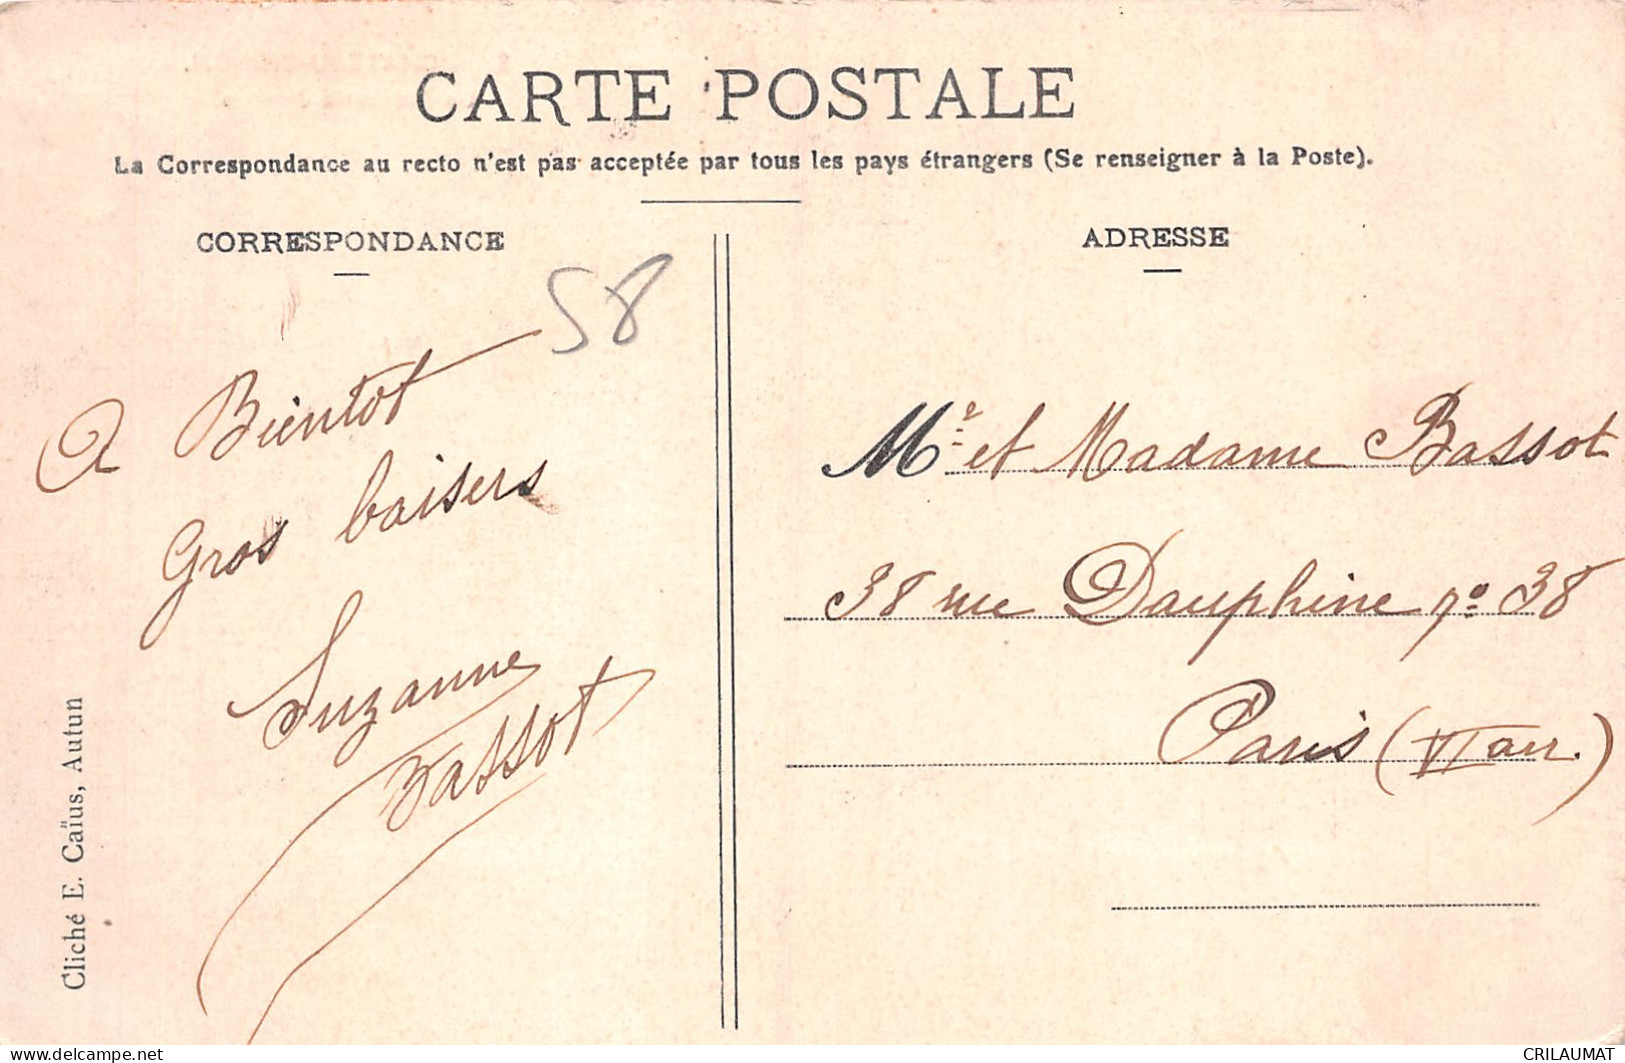 CARTE POSTALE
La Correspondance au recto n'est pas acceptée par tous les pays étrangers (Se renseigner à la Poste).
CORRESPONDANCE
58
A Bientot
Gros baisers
Suzanne
Bassot
Cliché E. Caïus, Autun
ADRESSE
Mr et Madame Bassot
38 rue Dauphine no 38
Paris (VI arr.)
delcampe.net
CRILAUMAT